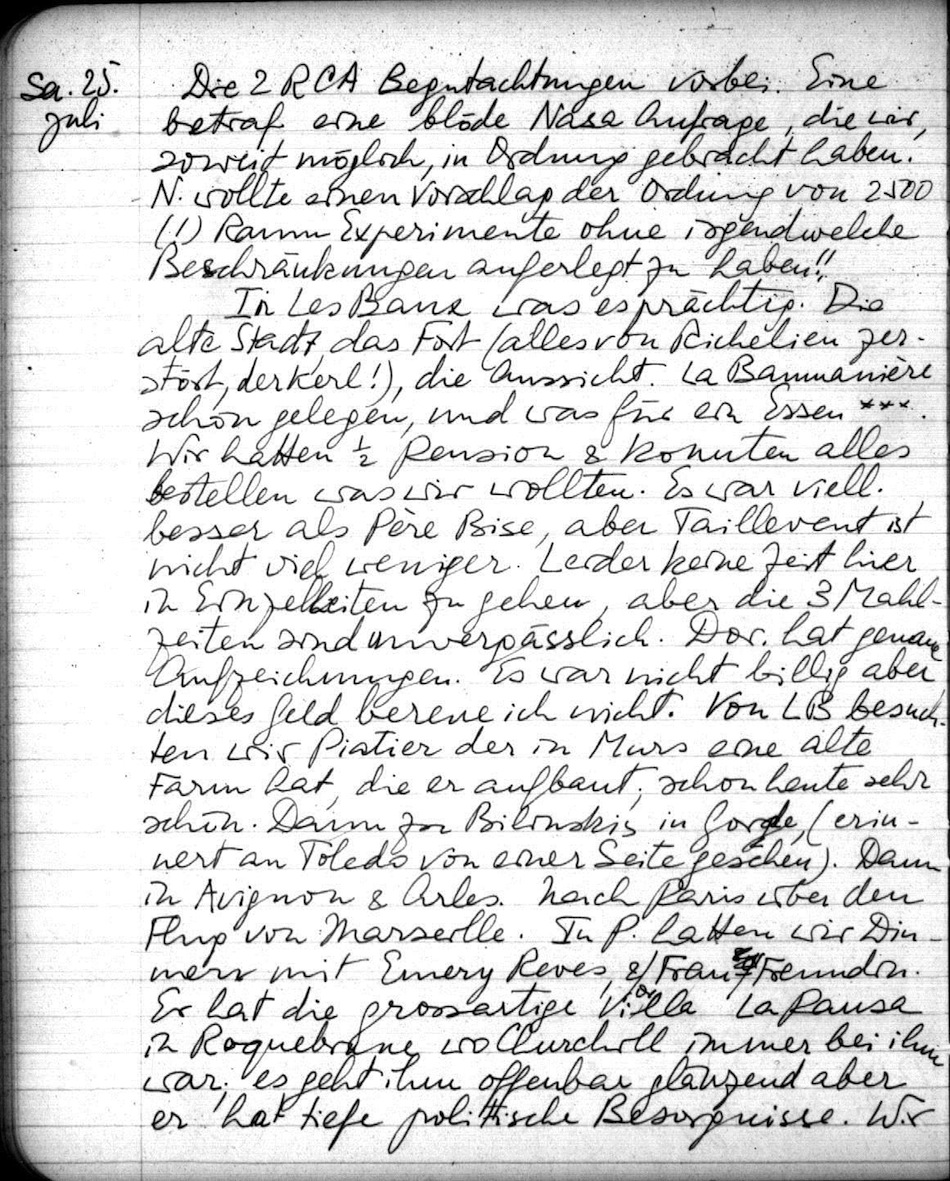 Sa. 25.
Juli
Die 2 RCA Begutachtungen vorbei. Eine
betraf eine blöde Nasa Anfrage, die wir,
soweit möglich, in Ordnung gebracht haben.
N. wollte einen Vorschlag der Ordnung von 2500
(!) Raum Experimente ohne irgendwelche
Beschränkungen auferlegt zu haben!!
In Les Baux was es prächtig. Die
alte Stadt, das Fort (alles von Richelieu zer-
stört, der Kerl!), die Aussicht. La Baumanière
schön gelegen, und was für ein Essen ***.
Wir hatten ½ Pension & konnten alles
bestellen was wir wollten. Es war viell.
besser als Père Bise, aber Taillevent ist
nicht viel weniger. Leider keine Zeit hier
in Einzelheiten zu gehen, aber die 3 Mahl-
zeiten sind unvergässlich. Dor. hat genaue
Aufzeichnungen. Es war nicht billig aber
dieses Geld bereue ich nicht. Von LB besuch-
ten wir Piatier der in Murs eine alte
Farm hat, die er aufbaut; schon heute sehr
schön. Dann zu Bilinskis in Gorde, (erin-
nert an Toledo von einer Seite gesehen). Dann
in Avignon & Arles. Nach Paris über den
Flug von Marseille. In P. hatten wir Din-
ners mit Emery Reves, & Frau / Freundin.
Er hat die grossartige Villa La Pausa
in Roquebrune wo Churchill immer bei ihm
war; es geht ihm offenbar glänzend aber
er hat tiefe politische Besorgnisse. Wir